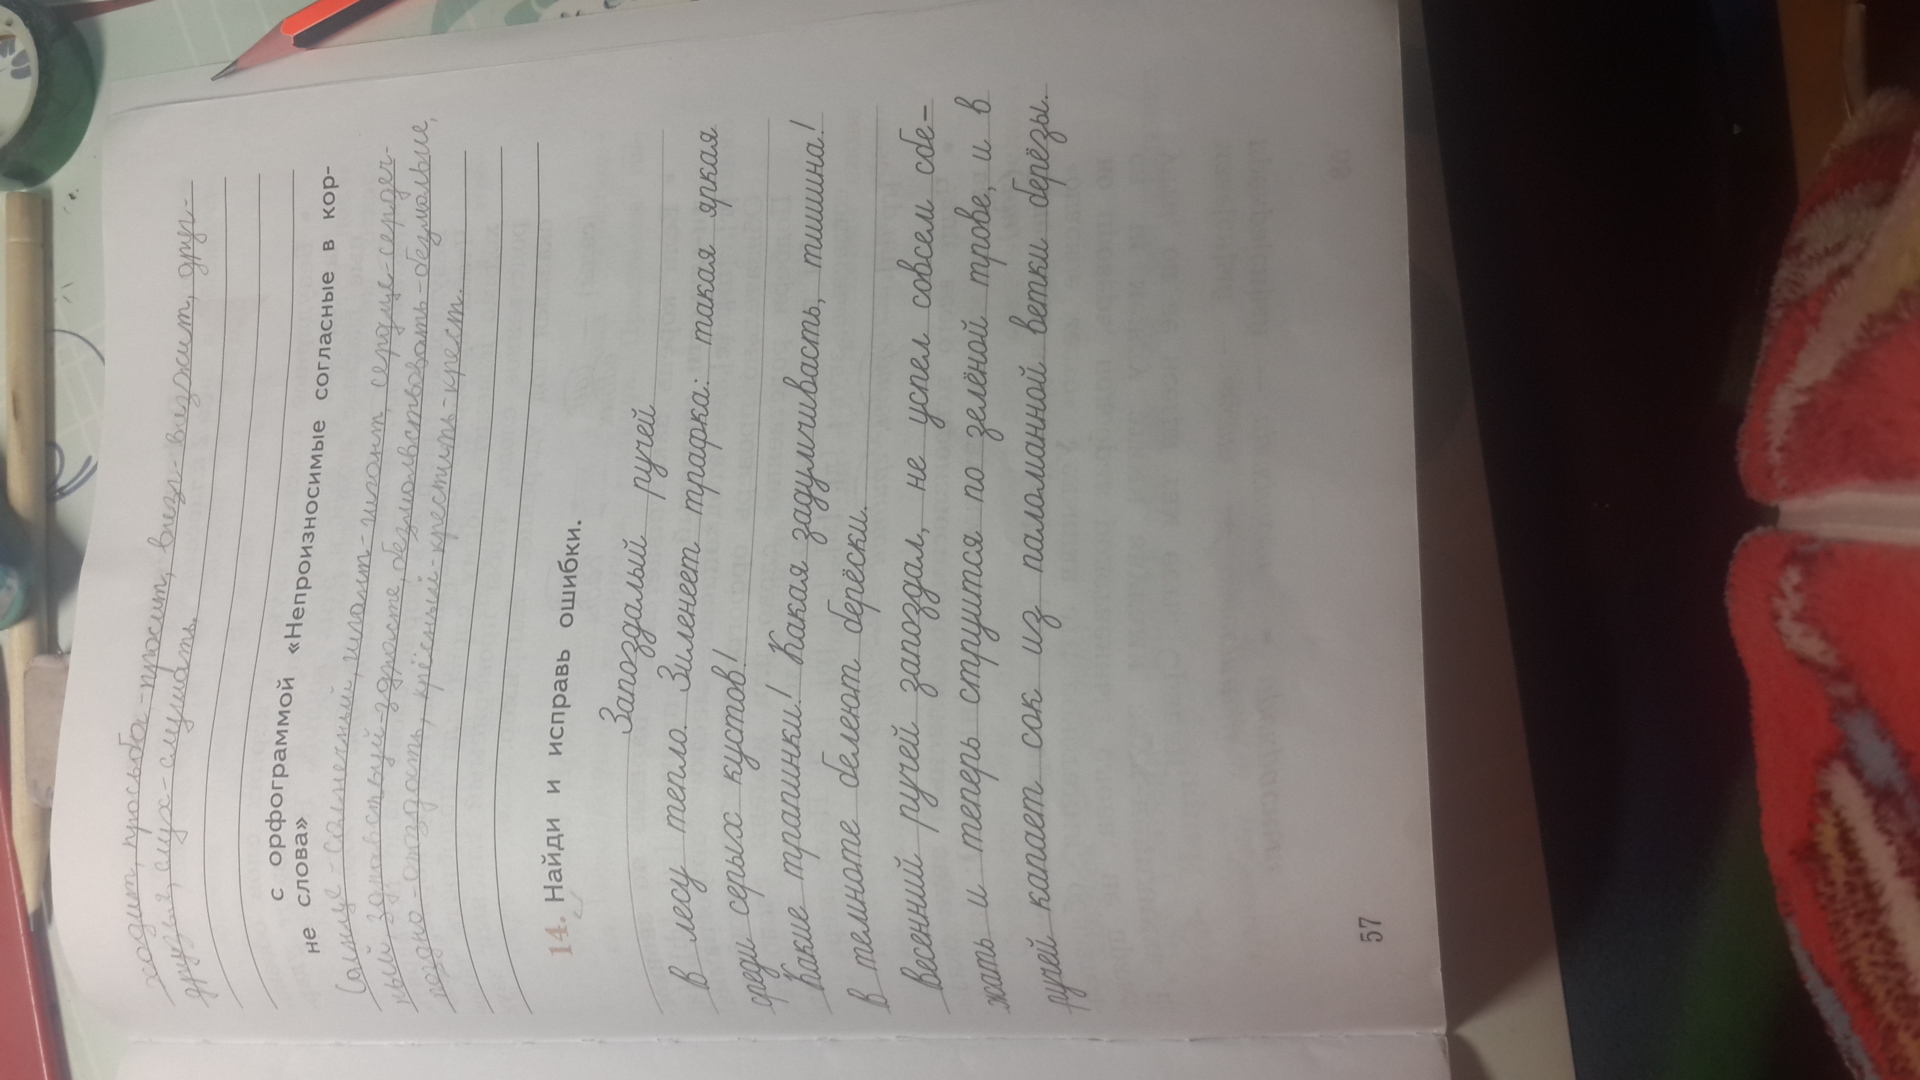 ходит, просьба - просит, визг - визжит, друг -
друзья, слух - слушать.
с орфограммой «Непроизносимые согласные в кор-
не слова»
Солнце - солнечный, гигант - гигант, сердце - сердеч-
ный, здравствуй - здрасте, безмолвствовать - безмолвие,
поздно - опоздать, крёсный - крестить - крест.
14. Найди и исправь ошибки.
Запоздалый ручей
В лесу тепло. Зиленеет трафка: такая яркая
среди серых кустов!
Какие трапинки! Какая задумчивасть, тишина!
В темноте белеют берёски.
Весенний ручей запоздал, не успел совсем сбе-
жать и теперь струится по зелёной трове, и в
ручей капает сок из паломанной ветки берёзы.
57